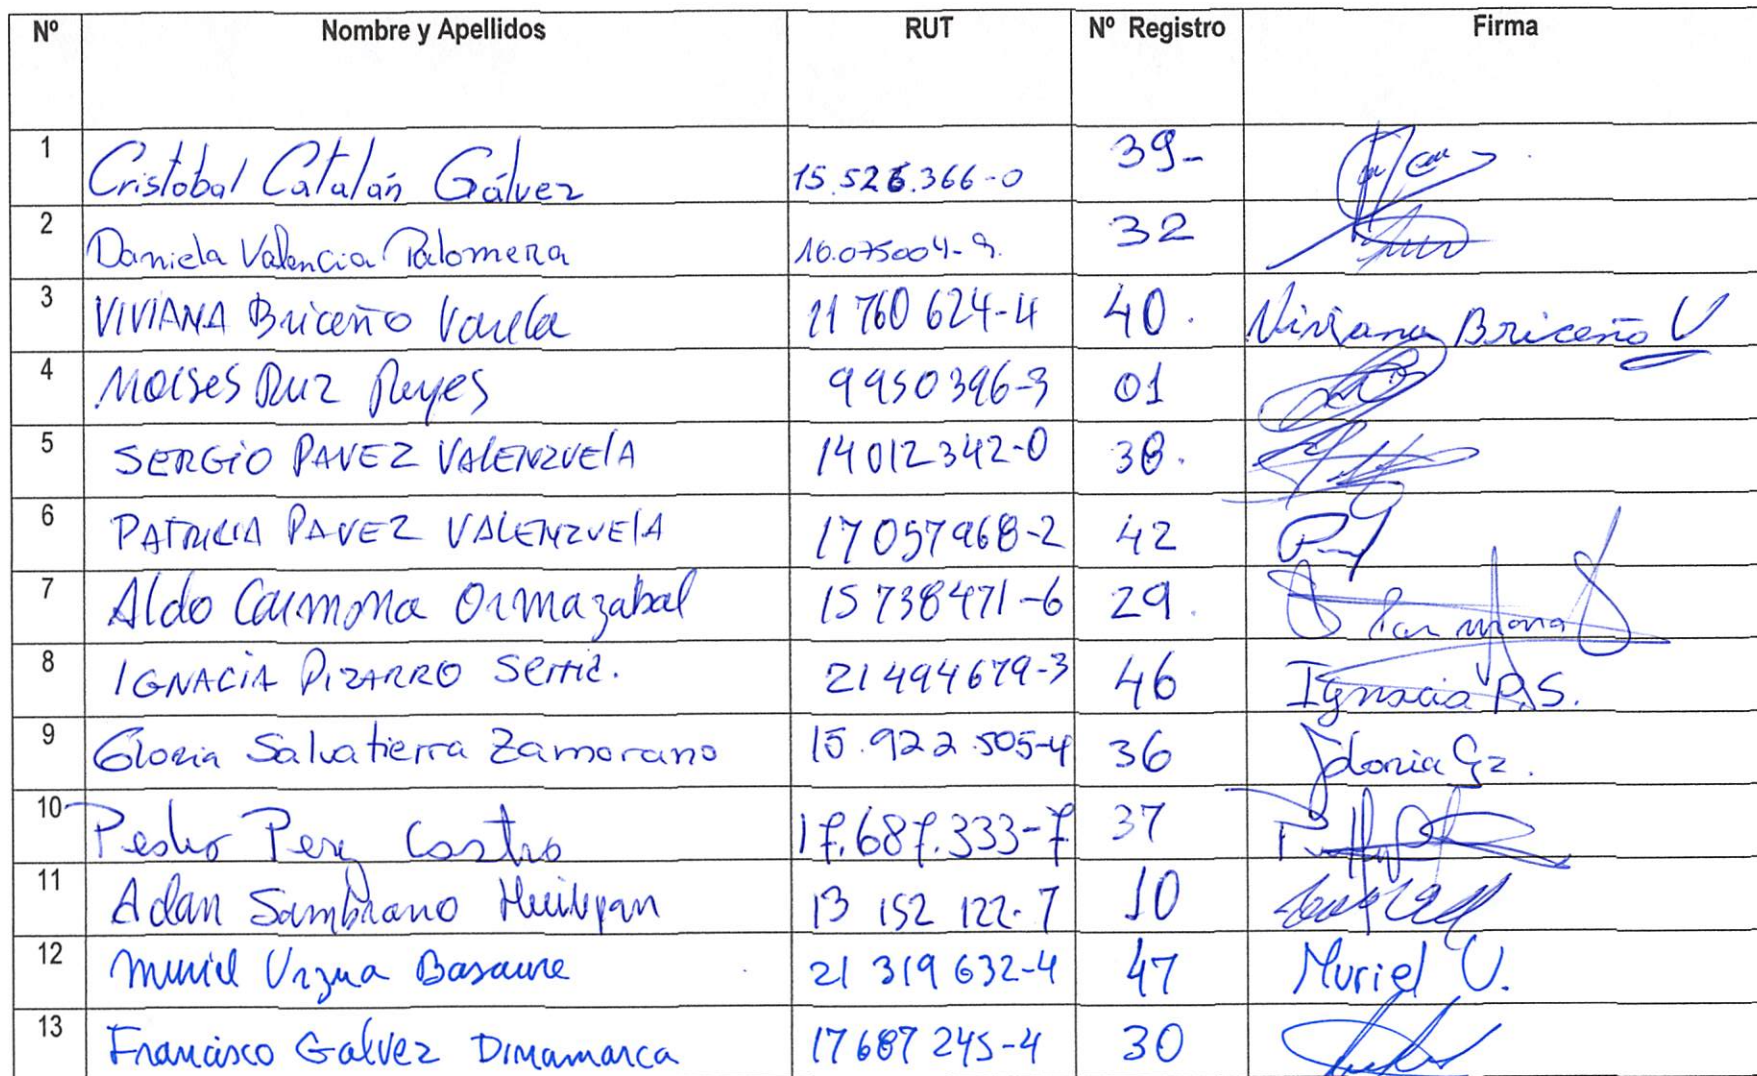 Nº Nombre y Apellidos RUT Nº Registro Firma
1 Cristobal Catalán Gálvez 15.526.366-0 39-
2 Daniela Valencia Palomera 16.075004-9. 32
3 VIVIANA Briceño Varela 11 760 624-4 40. Viviana Briceño V
4 Moises Ruz Reyes 9950396-3 01
5 SERGIO PAVEZ VALENZUELA 14012342-0 38.
6 PATRICIA PAVEZ VALENZUELA 17057968-2 42
7 Aldo Carmona Ormazabal 15738471-6 29. Carmona
8 IGNACIA PIZARRO 21494679-3 46 Ignacia P.S.
9 Gloria Salvatierra Zamorano 15.922.505-4 36 Gloria
10 Pedro Perez Castro 17.687.333-7 37
11 Adan Sambrano 13 152 122-7 10
12 Muriel Urzua Basaure 21 319 632-4 47 Muriel U.
13 Francisco Galvez Dinamarca 17687245-4 30